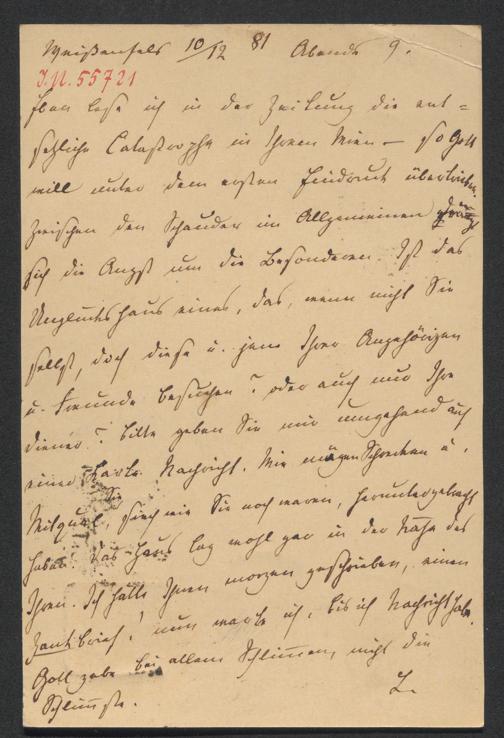 Weißenfels 10/12 81 Abends 9.
I.N. 55721
Eben lese ich in der Zeitung die ent=
setzliche Catastrophe in Ihrem Wien – so Gott
will unter dem ersten Eindruck übertrieben.
Zwischen den Schauder im Allgemeinen drängt
sich die Angst um die Besonderen. Ist das
Unglückshaus eines, das, wenn nicht Sie
selbst, doch diese u. jene Ihrer Angehörigen
u. Freunde besuchen? oder auch nur Ihre
Diener? Bitte geben Sie mir umgehend auf
einer Karte Nachricht. Wie mögen Schrecken u.
Mitgefühl, siech wie Sie noch waren, Sie heruntergebracht
haben! Das Haus lag wohl gar in der Nähe des
Ihren. Ich hätte Ihnen morgen geschrieben, einen
Dankbrief, nun warte ich, bis ich Nachricht habe.
Gott gebe bei allem Schlimmen, nicht die
Schlimmste.
L.